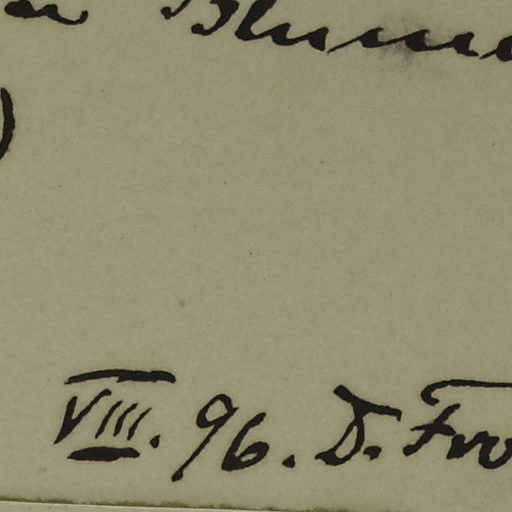 Blume
)
VIII. 96. D. Fro